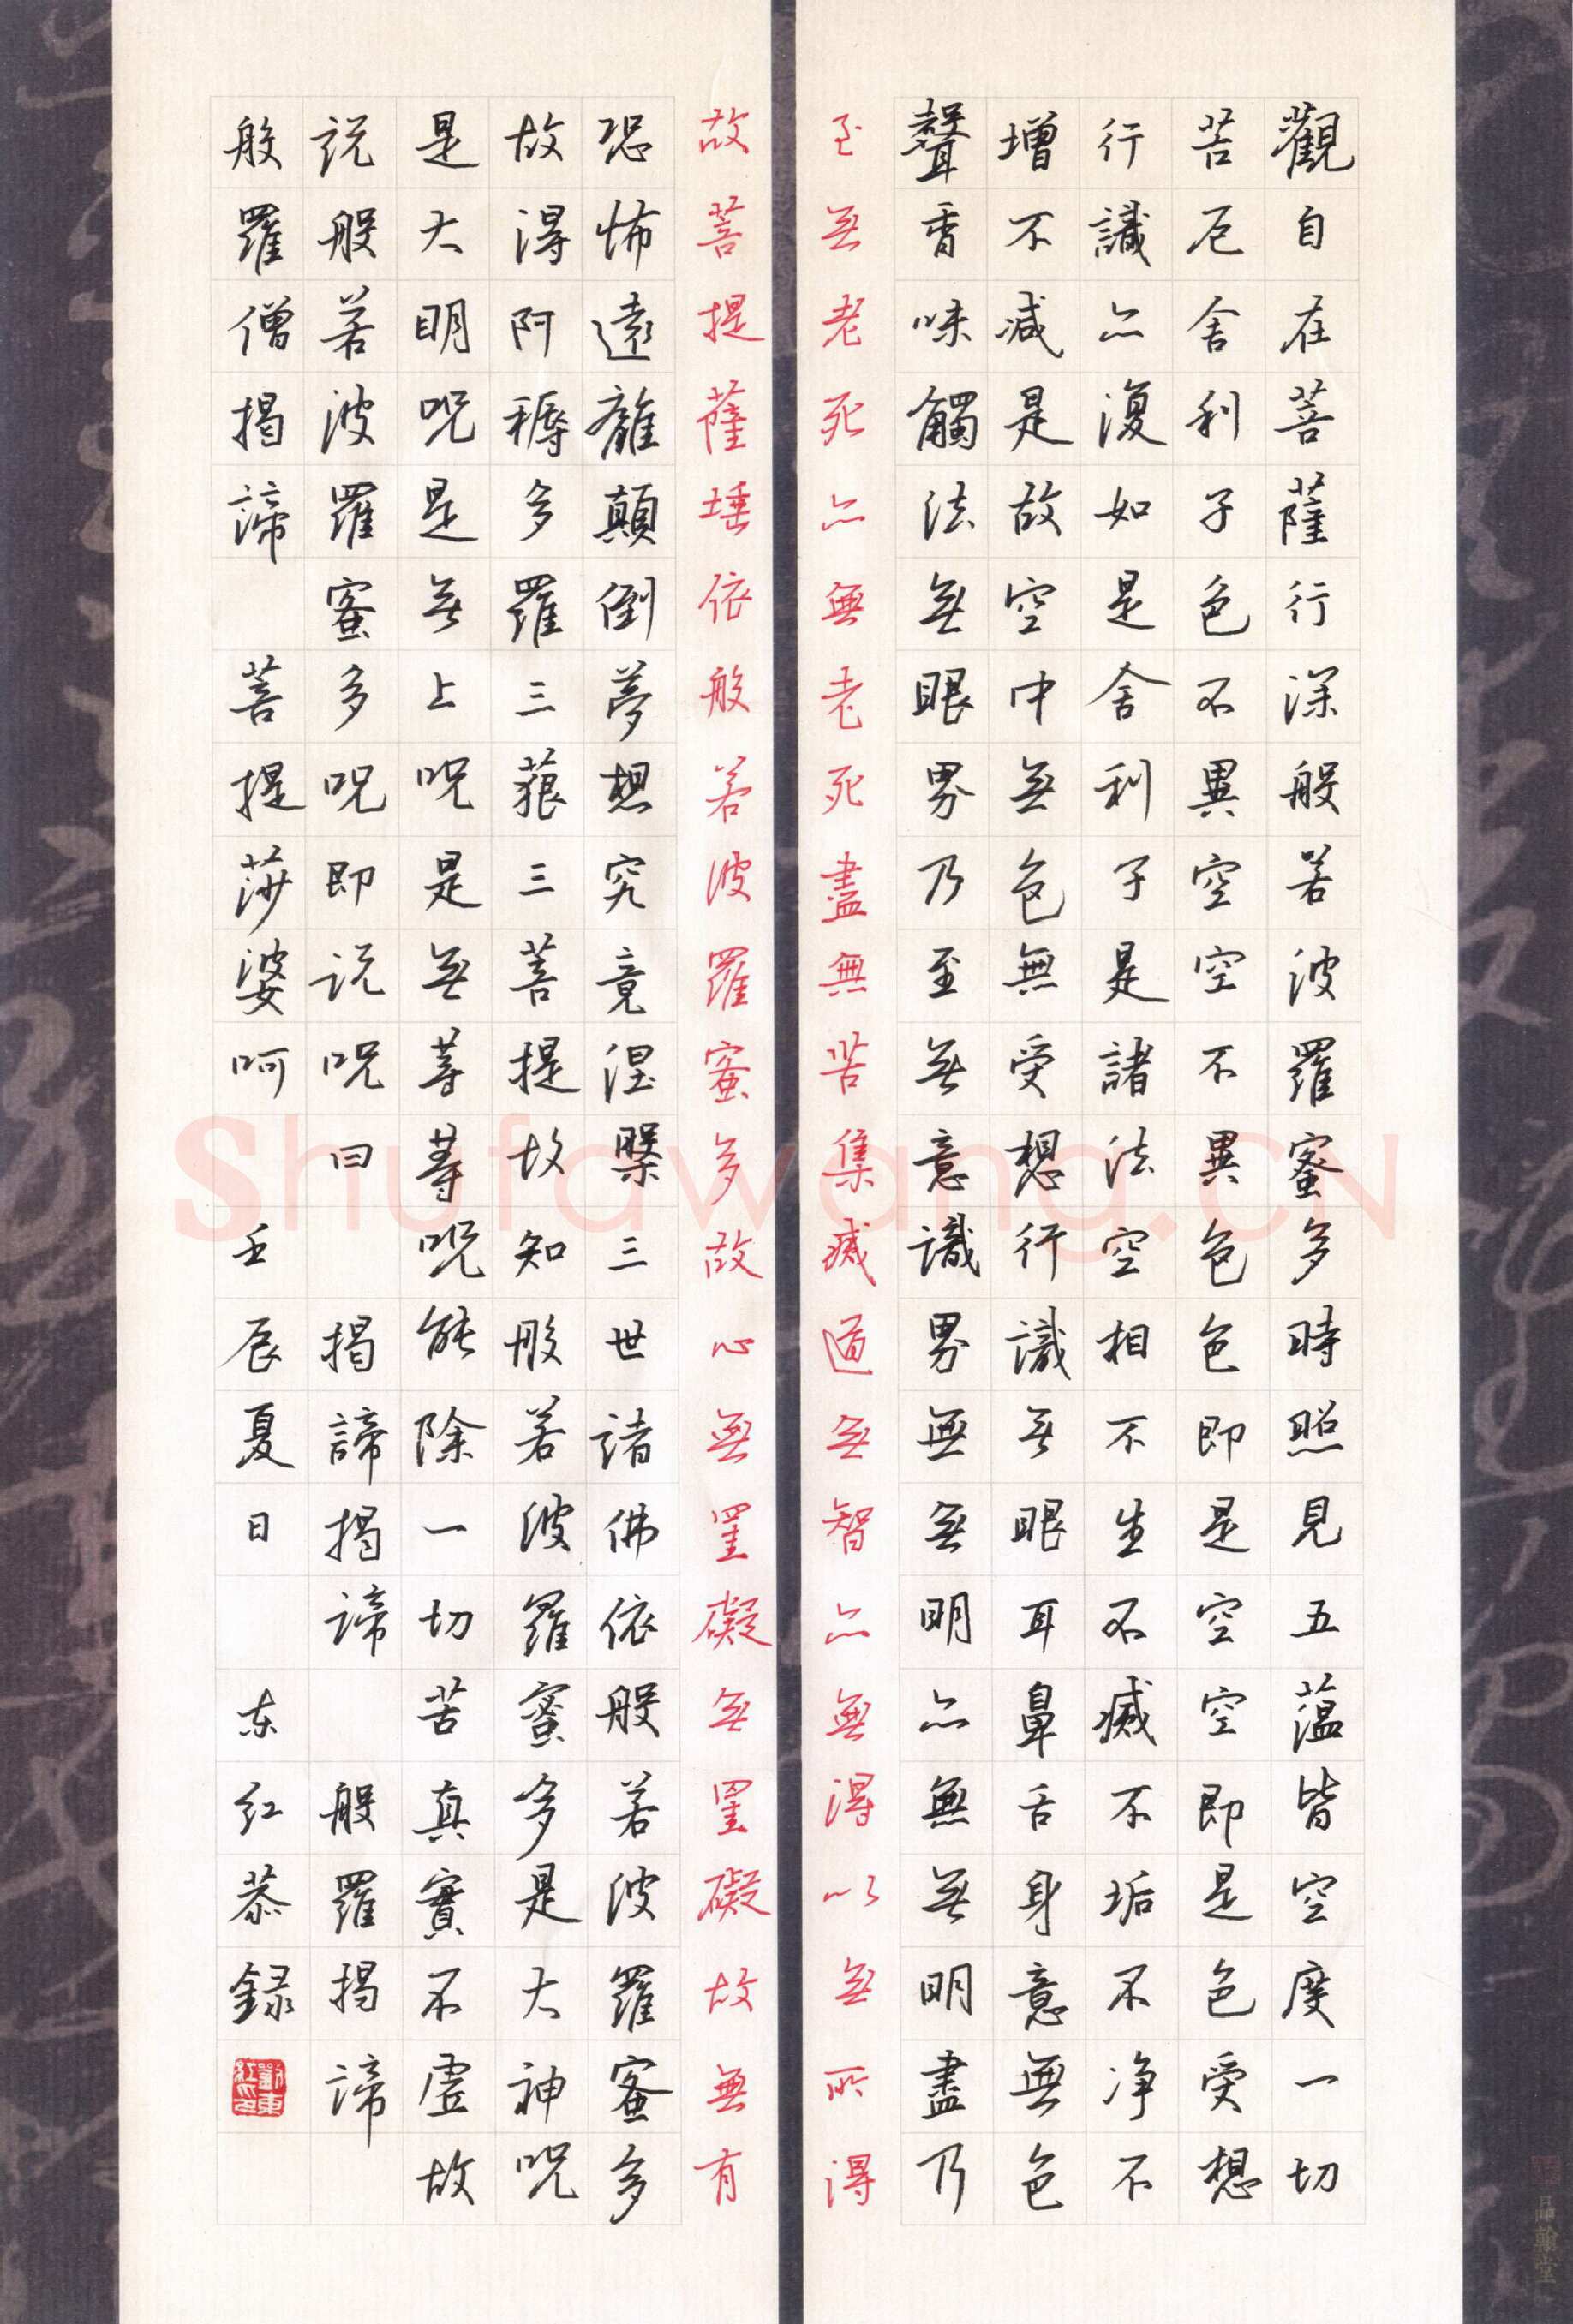 觀自在菩薩行深般若波羅蜜多時照見五蘊皆空度一切
苦厄舍利子色不異空空不異色色即是空空即是色受想
行識亦復如是舍利子是諸法空相不生不滅不垢不净不
增不减是故空中無色無受想行識無眼耳鼻舌身意無色
聲香味觸法無眼界乃至無意識界無無明亦無無明盡乃
至無老死亦無老死盡無苦集滅道無智亦無得以無所得
故菩提薩埵依般若波羅蜜多故心無罣礙無罣礙故無有
恐怖遠離顛倒夢想究竟涅槃三世諸佛依般若波羅蜜多
故得阿耨多羅三藐三菩提故知般若波羅蜜多是大神呪
是大明呪是無上呪是無等等呪能除一切苦真實不虛故
説般若波羅蜜多呪即説呪曰 揭諦揭諦 般羅揭諦
般羅僧揭諦 菩提莎婆呵 壬辰夏日 东红恭録
劉東紅印
品翰堂
Shufawang.CN